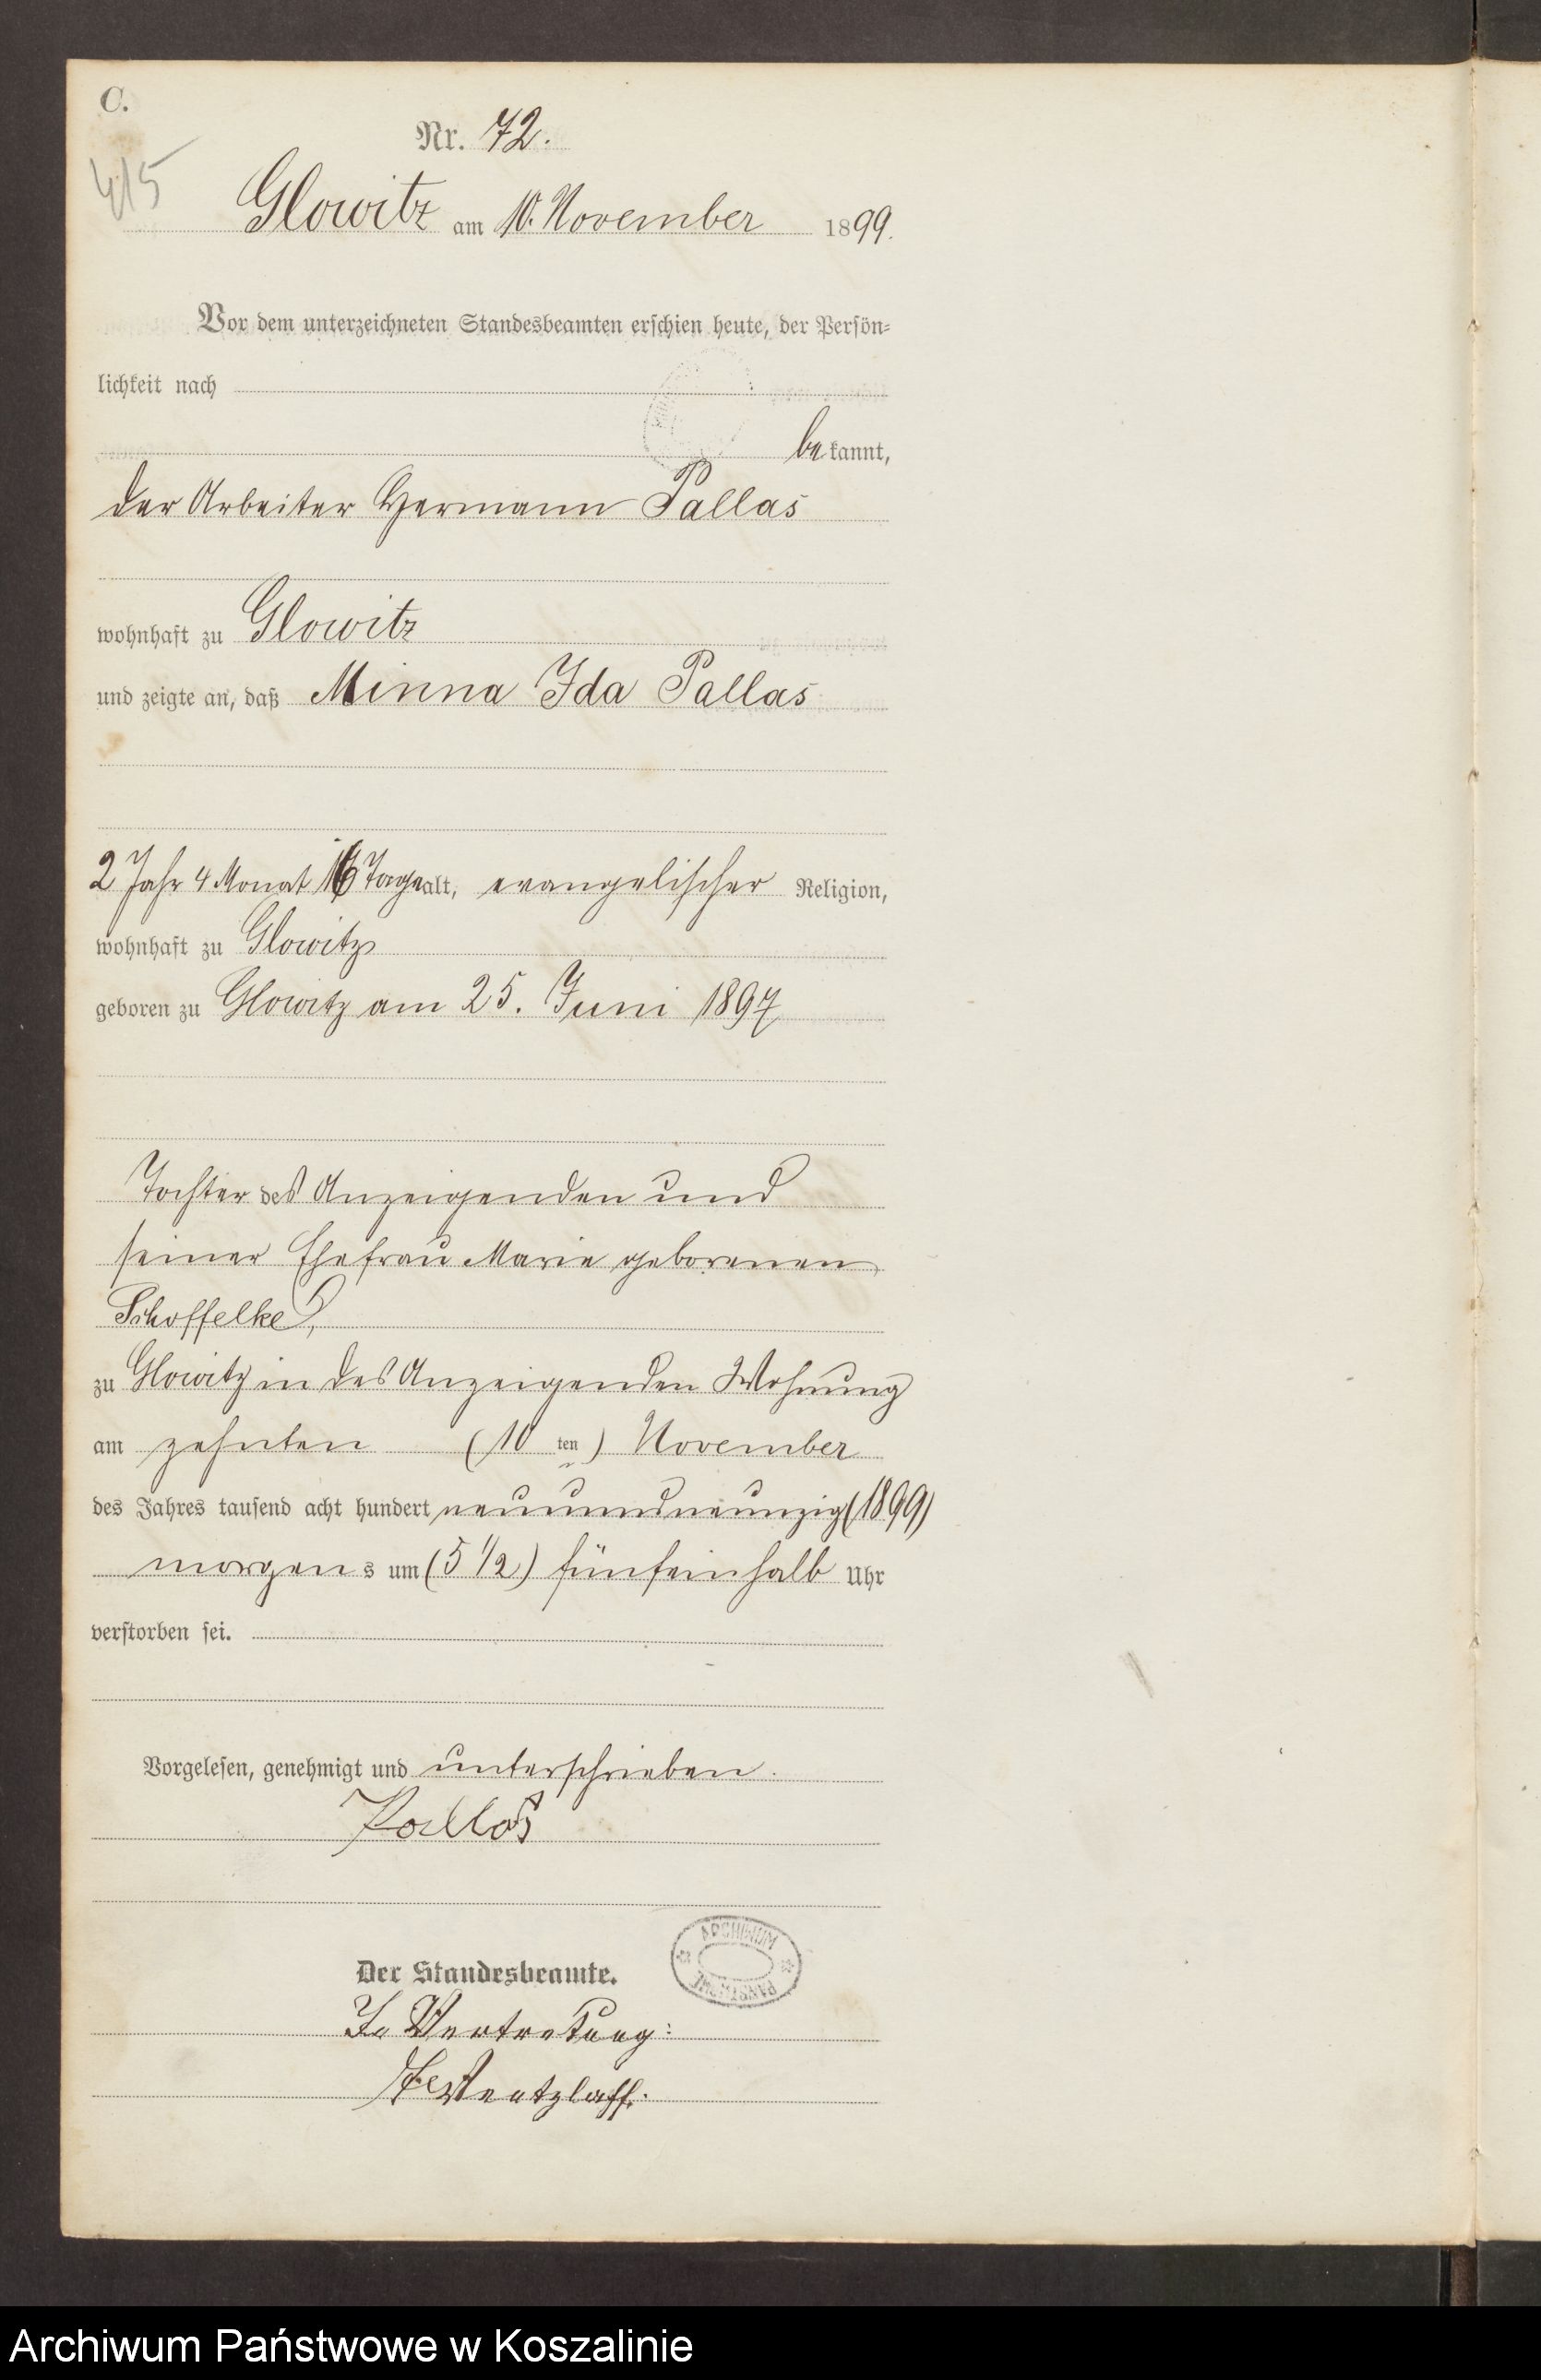 C.
Nr. 72.
415
Glowitz am 10. November 1899.
Vor dem unterzeichneten Standesbeamten erschien heute, der Persön-
lichkeit nach
bekannt,
der Arbeiter Hermann Pallas
wohnhaft zu Glowitz
und zeigte an, daß Minna Ida Pallas
2 Jahr 4 Monat 16 Tage alt, evangelischer Religion,
wohnhaft zu Glowitz
geboren zu Glowitz am 25. Juni 1897
Tochter des Anzeigenden und
seiner Ehefrau Marie geborenen
Schoffelke,
zu Glowitz in des Anzeigenden Wohnung
am zehnten (10 ten) November
des Jahres tausend acht hundert neunundneunzig (1899)
morgens um (5 1/2) fünfeinhalb Uhr
verstorben sei.
Vorgelesen, genehmigt und unterschrieben.
Pallas
Der Standesbeamte.
ARCHIWUM PAŃSTWOWE
In Vertretung:
Wentzlaff.
Archiwum Państwowe w Koszalinie